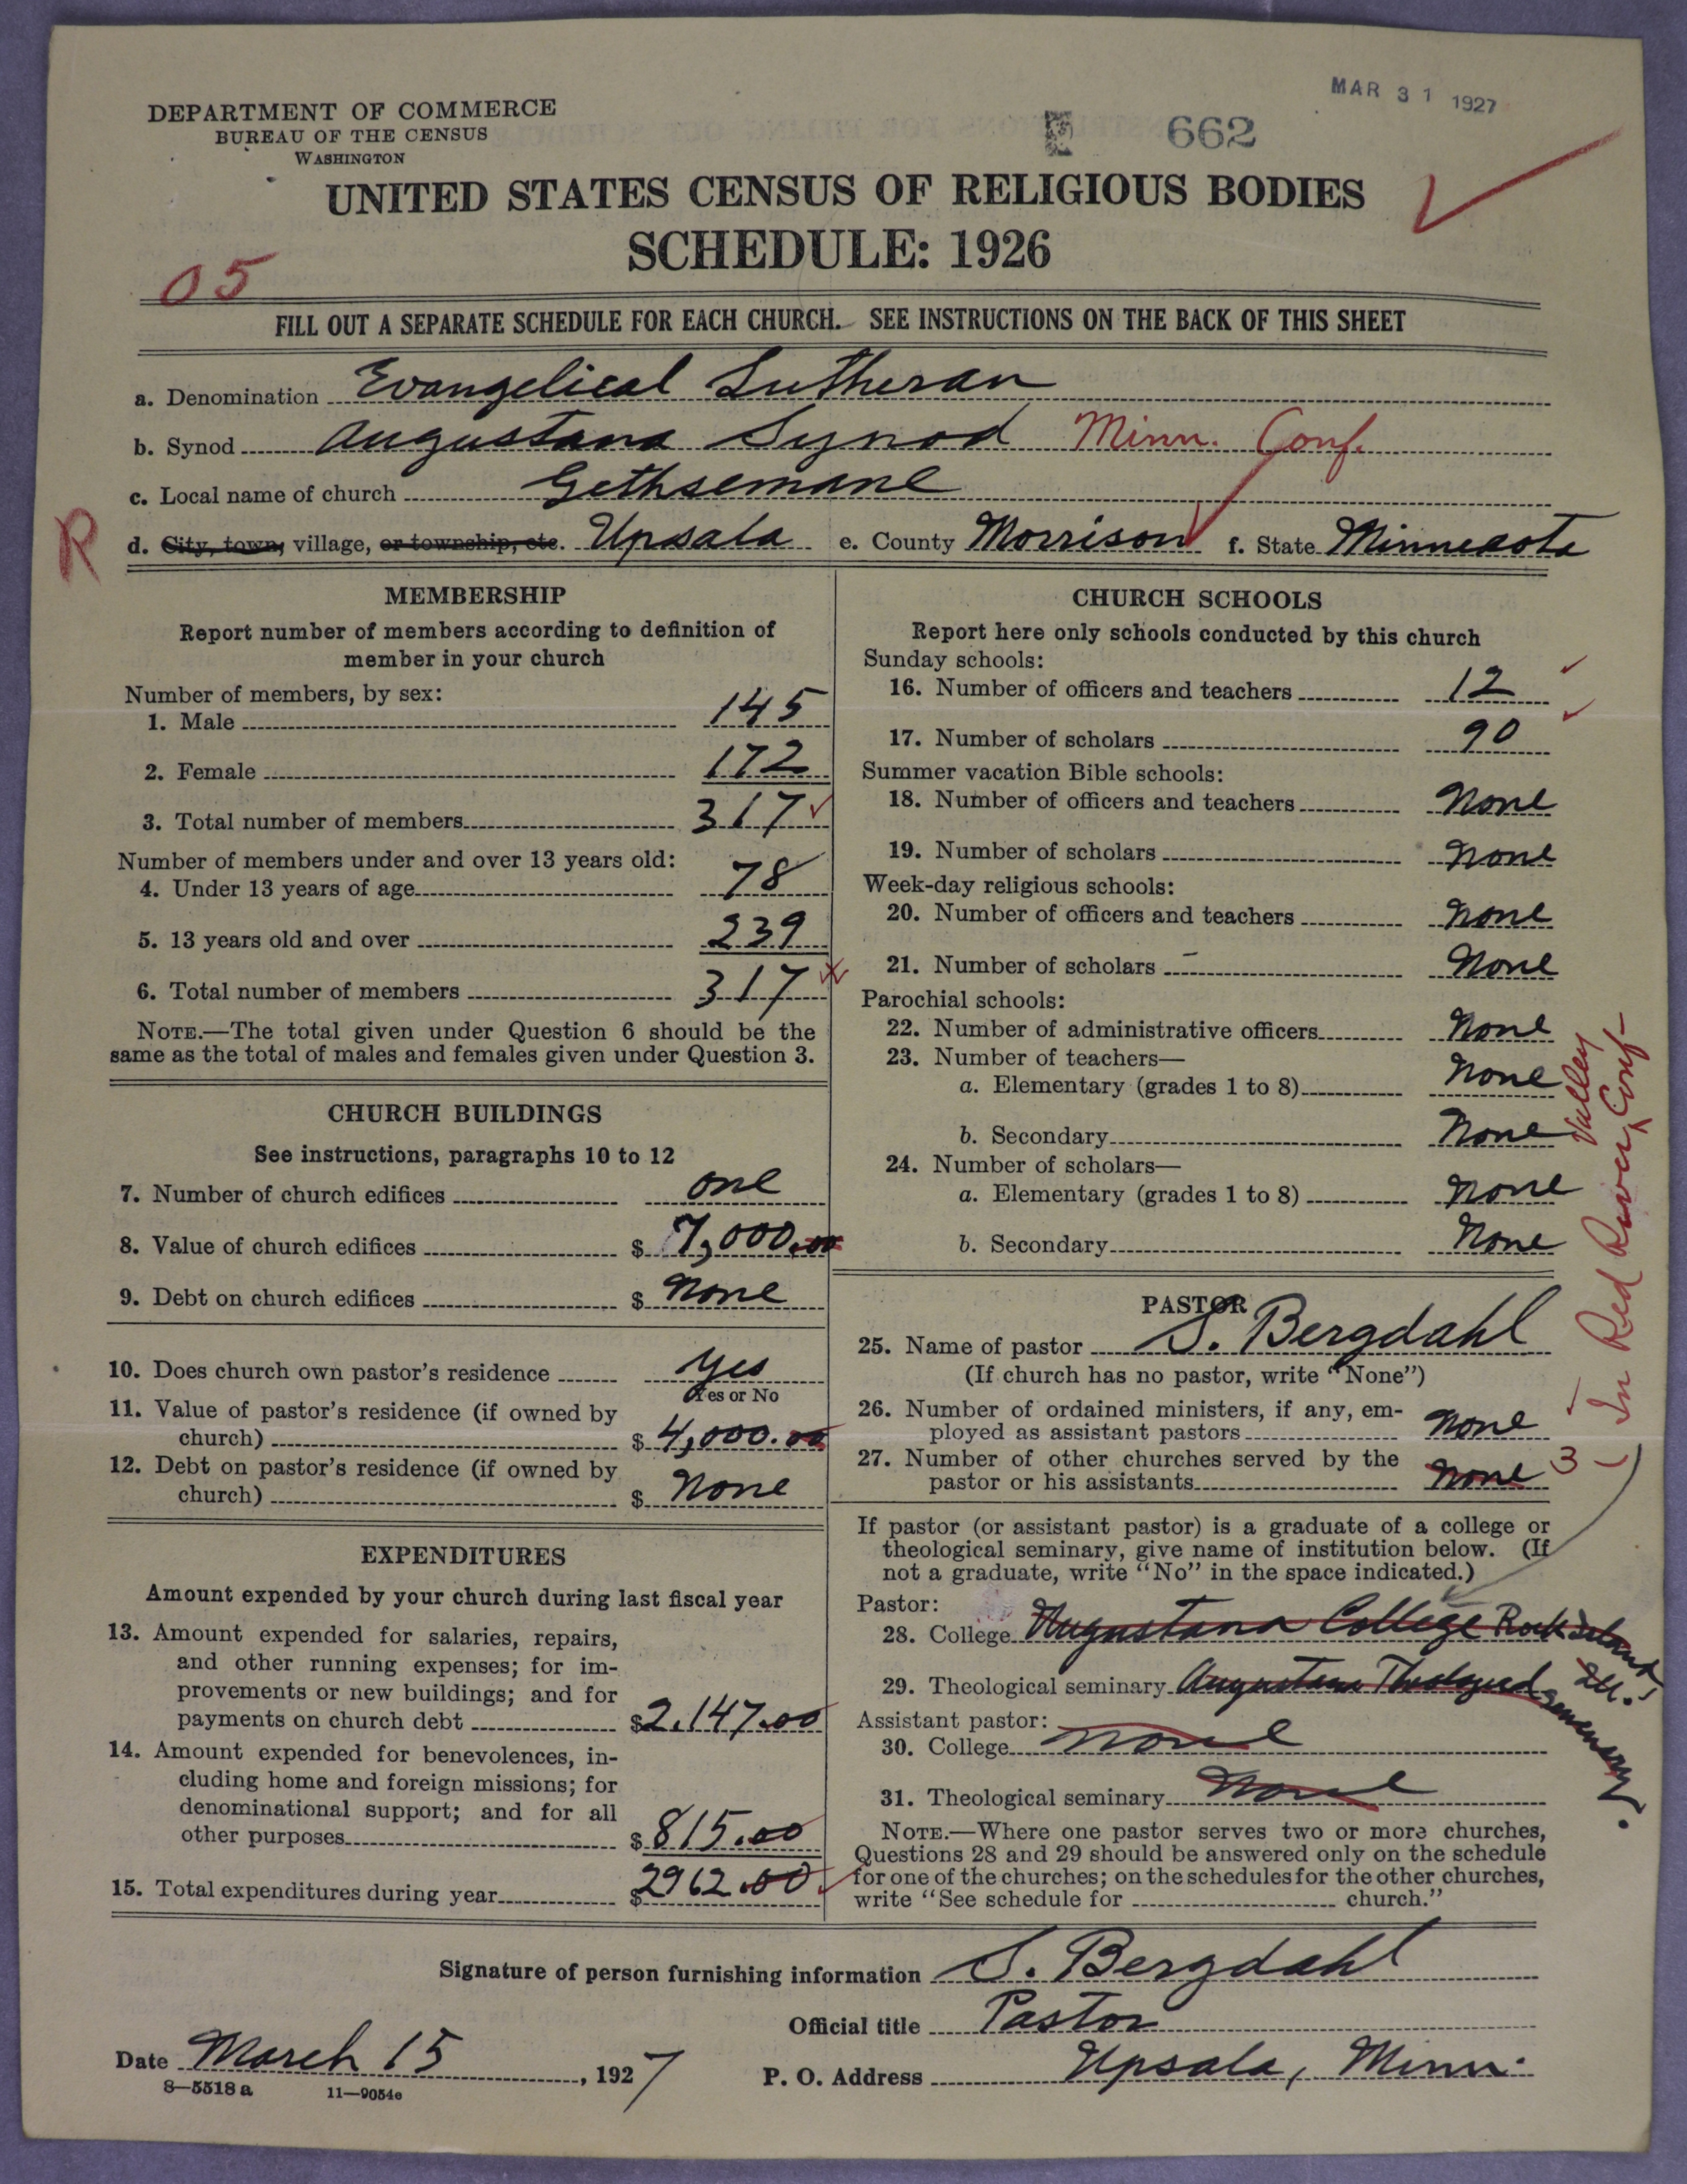 MAR 31 1927
DEPARTMENT OF COMMERCE
BUREAU OF THE CENSUS
WASHINGTON
662
UNITED STATES CENSUS OF RELIGIOUS BODIES
SCHEDULE: 1926
05
FILL OUT A SEPARATE SCHEDULE FOR EACH CHURCH. SEE INSTRUCTIONS ON THE BACK OF THIS SHEET
a. Denomination Evangelical Lutheran
b. Synod Augustana Synod Minn. Conf.
c. Local name of church Gethsemane
R
d. City, town, village, or township, etc. Upsala e. County Morrison f. State Minnesota
MEMBERSHIP
Report number of members according to definition of
member in your church
Number of members, by sex:
1. Male 145
2. Female 172
3. Total number of members 317
Number of members under and over 13 years old:
4. Under 13 years of age 78
5. 13 years old and over 239
6. Total number of members 317
NOTE.—The total given under Question 6 should be the
same as the total of males and females given under Question 3.
CHURCH BUILDINGS
See instructions, paragraphs 10 to 12
7. Number of church edifices one
8. Value of church edifices $ 7,000.00
9. Debt on church edifices $ None
10. Does church own pastor's residence Yes
Yes or No
11. Value of pastor's residence (if owned by
church) $ 4,000.00
12. Debt on pastor's residence (if owned by
church) $ None
EXPENDITURES
Amount expended by your church during last fiscal year
13. Amount expended for salaries, repairs,
and other running expenses; for im-
provements or new buildings; and for
payments on church debt $2,147.00
14. Amount expended for benevolences, in-
cluding home and foreign missions; for
denominational support; and for all
other purposes $ 815.00
15. Total expenditures during year $2962.00
CHURCH SCHOOLS
Report here only schools conducted by this church
Sunday schools:
16. Number of officers and teachers 12
17. Number of scholars 90
Summer vacation Bible schools:
18. Number of officers and teachers None
19. Number of scholars None
Week-day religious schools:
20. Number of officers and teachers None
21. Number of scholars None
Parochial schools:
22. Number of administrative officers None
23. Number of teachers—
a. Elementary (grades 1 to 8) None
b. Secondary None
24. Number of scholars—
a. Elementary (grades 1 to 8) None
b. Secondary None
In Red River Valley Conf-
PASTOR
25. Name of pastor S. Bergdahl
(If church has no pastor, write "None")
26. Number of ordained ministers, if any, em-
ployed as assistant pastors None
27. Number of other churches served by the
pastor or his assistants None 3
If pastor (or assistant pastor) is a graduate of a college or
theological seminary, give name of institution below. (If
not a graduate, write "No" in the space indicated.)
Pastor:
28. College Augustana College Rock Island Ill.
29. Theological seminary Augustana Theological Semenary.
Assistant pastor:
30. College None
31. Theological seminary None
NOTE.—Where one pastor serves two or more churches,
Questions 28 and 29 should be answered only on the schedule
for one of the churches; on the schedules for the other churches,
write "See schedule for church."
Signature of person furnishing information S. Bergdahl
Official title Pastor
Date March 15, 1927 P. O. Address Upsala, Minn.
8—5518a 11—9054e